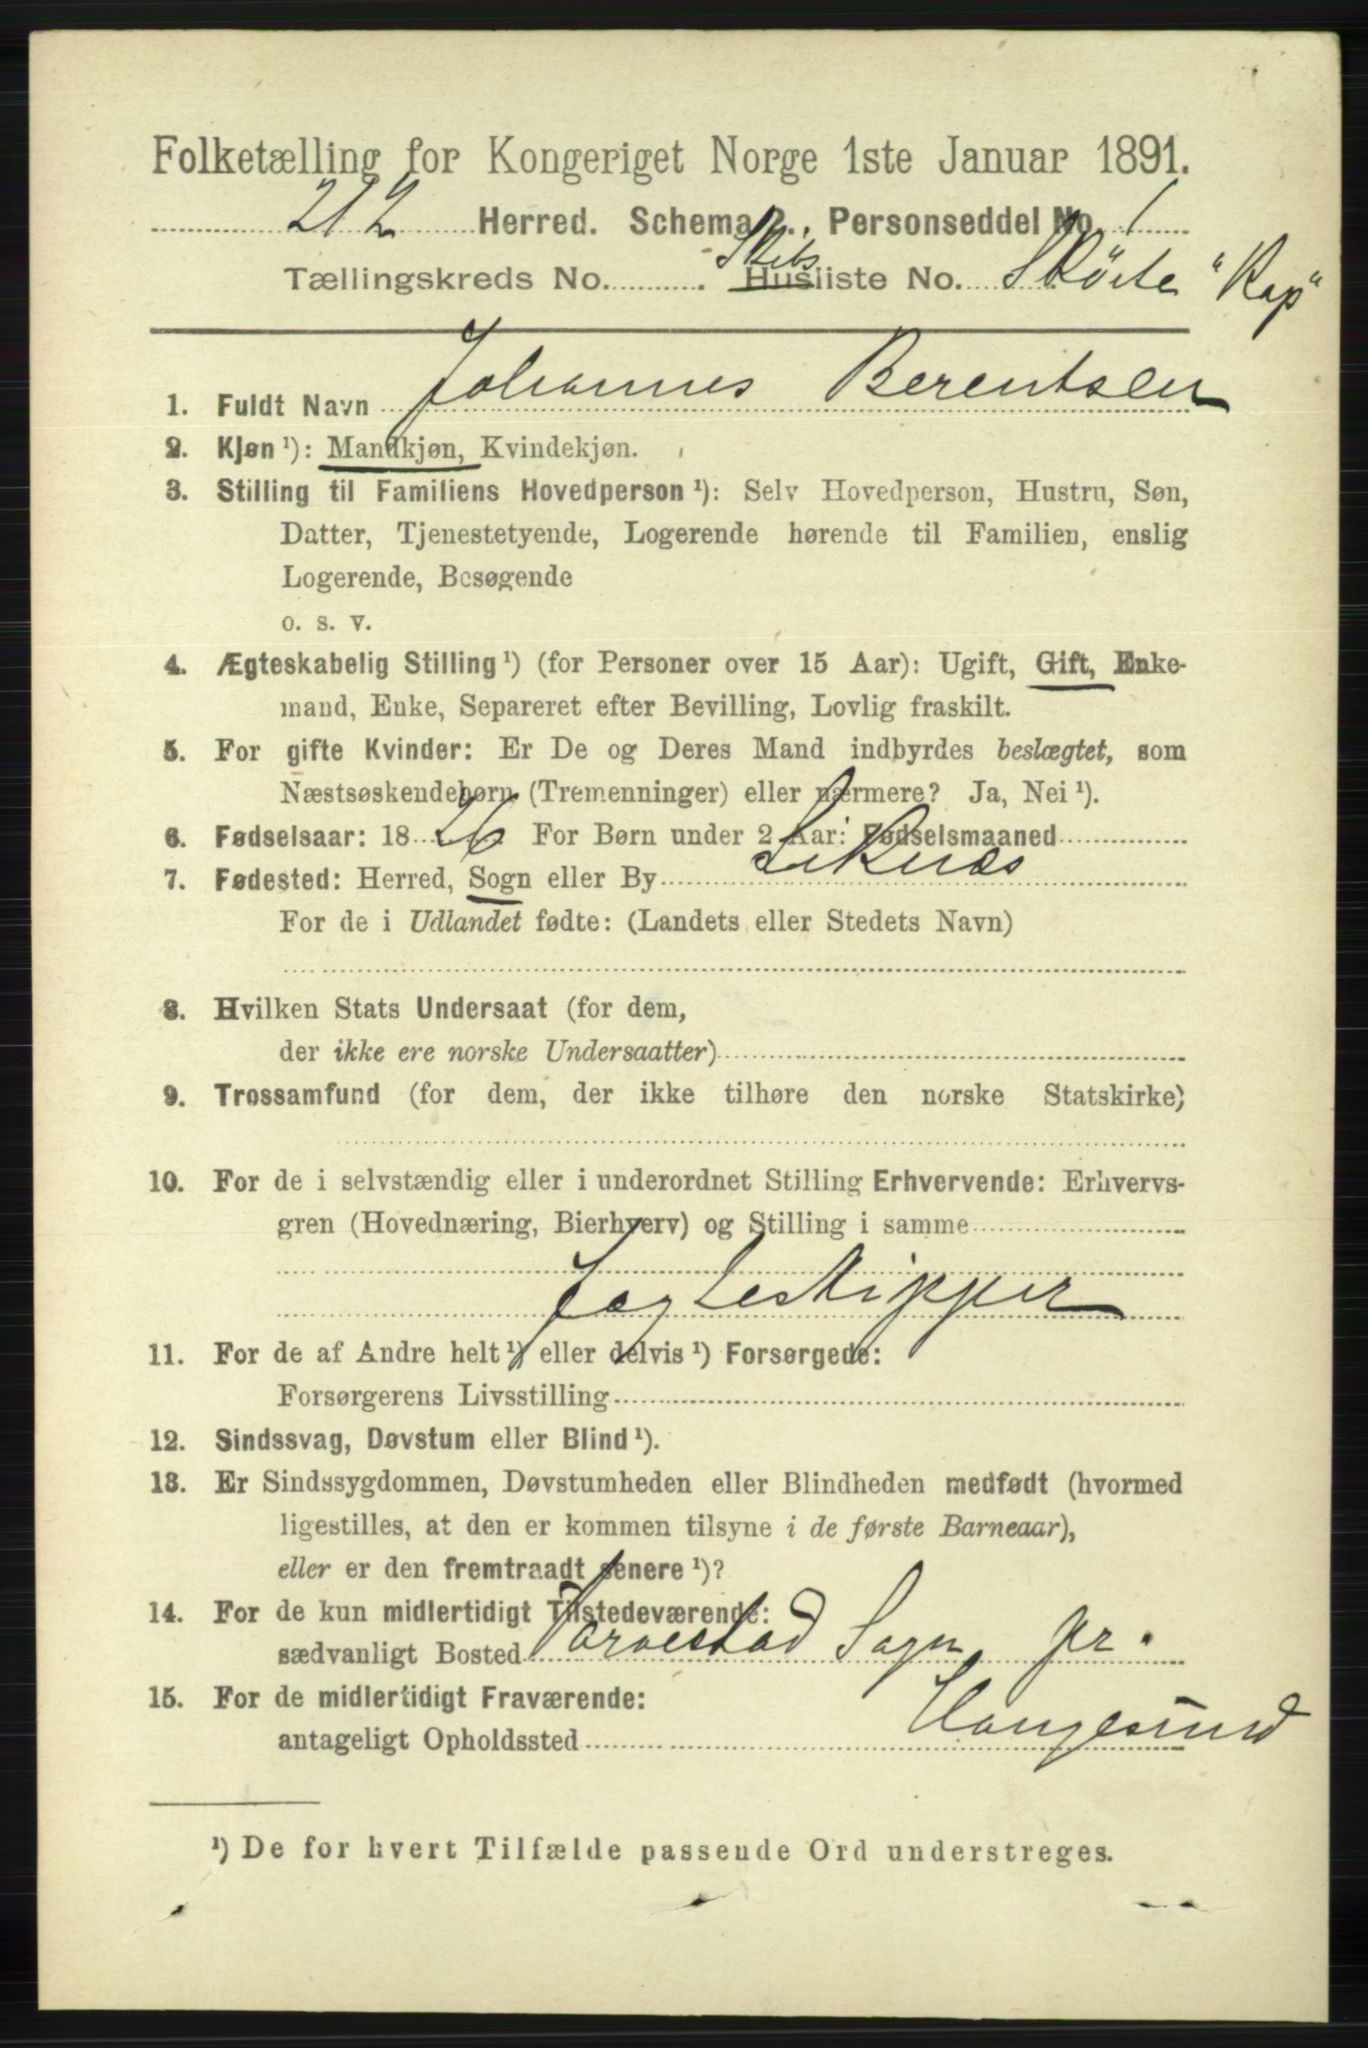 Folketælling for Kongeriget Norge 1ste Januar 1891.
212 Herred. Schema 2. Personseddel No. 1
Tællingskreds No. Skibs Husliste No. Sköite "Rap"
1. Fuldt Navn Johannes Berentsen
2. Kjøn ¹): Mandkjøn, Kvindekjøn.
3. Stilling til Familiens Hovedperson ¹): Selv Hovedperson, Hustru, Søn,
Datter, Tjenestetyende, Logerende hørende til Familien, enslig
Logerende, Besøgende
o. s. v.
4. Ægteskabelig Stilling ¹) (for Personer over 15 Aar): Ugift, Gift, Enke-
mand, Enke, Separeret efter Bevilling, Lovlig fraskilt.
5. For gifte Kvinder: Er De og Deres Mand indbyrdes beslægtet, som
Næstsøskendebørn (Tremenninger) eller nærmere? Ja, Nei ¹).
6. Fødselsaar: 1826 For Børn under 2 Aar: Fødselsmaaned
7. Fødested: Herred, Sogn eller By
For de i Udlandet fødte: (Landets eller Stedets Navn)
8. Hvilken Stats Undersaat (for dem,
der ikke ere norske Undersaatter)
9. Trossamfund (for dem, der ikke tilhøre den norske Statskirke)
10. For de i selvstændig eller i underordnet Stilling Erhvervende: Erhvervs-
gren (Hovednæring, Bierhverv) og Stilling i samme
Jagteskipper
11. For de af Andre helt ¹) eller delvis ¹) Forsørgede:
Forsørgerens Livsstilling
12. Sindssvag, Døvstum eller Blind ¹).
13. Er Sindssygdommen, Døvstumheden eller Blindheden medfødt (hvormed
ligestilles, at den er kommen tilsyne i de første Barneaar),
eller er den fremtraadt senere ¹)?
14. For de kun midlertidigt Tilstedeværende:
sædvanligt Bosted Torvestad Sogn pr.
15. For de midlertidigt Fraværende:
antageligt Opholdssted Haugesund
¹) De for hvert Tilfælde passende Ord understreges.